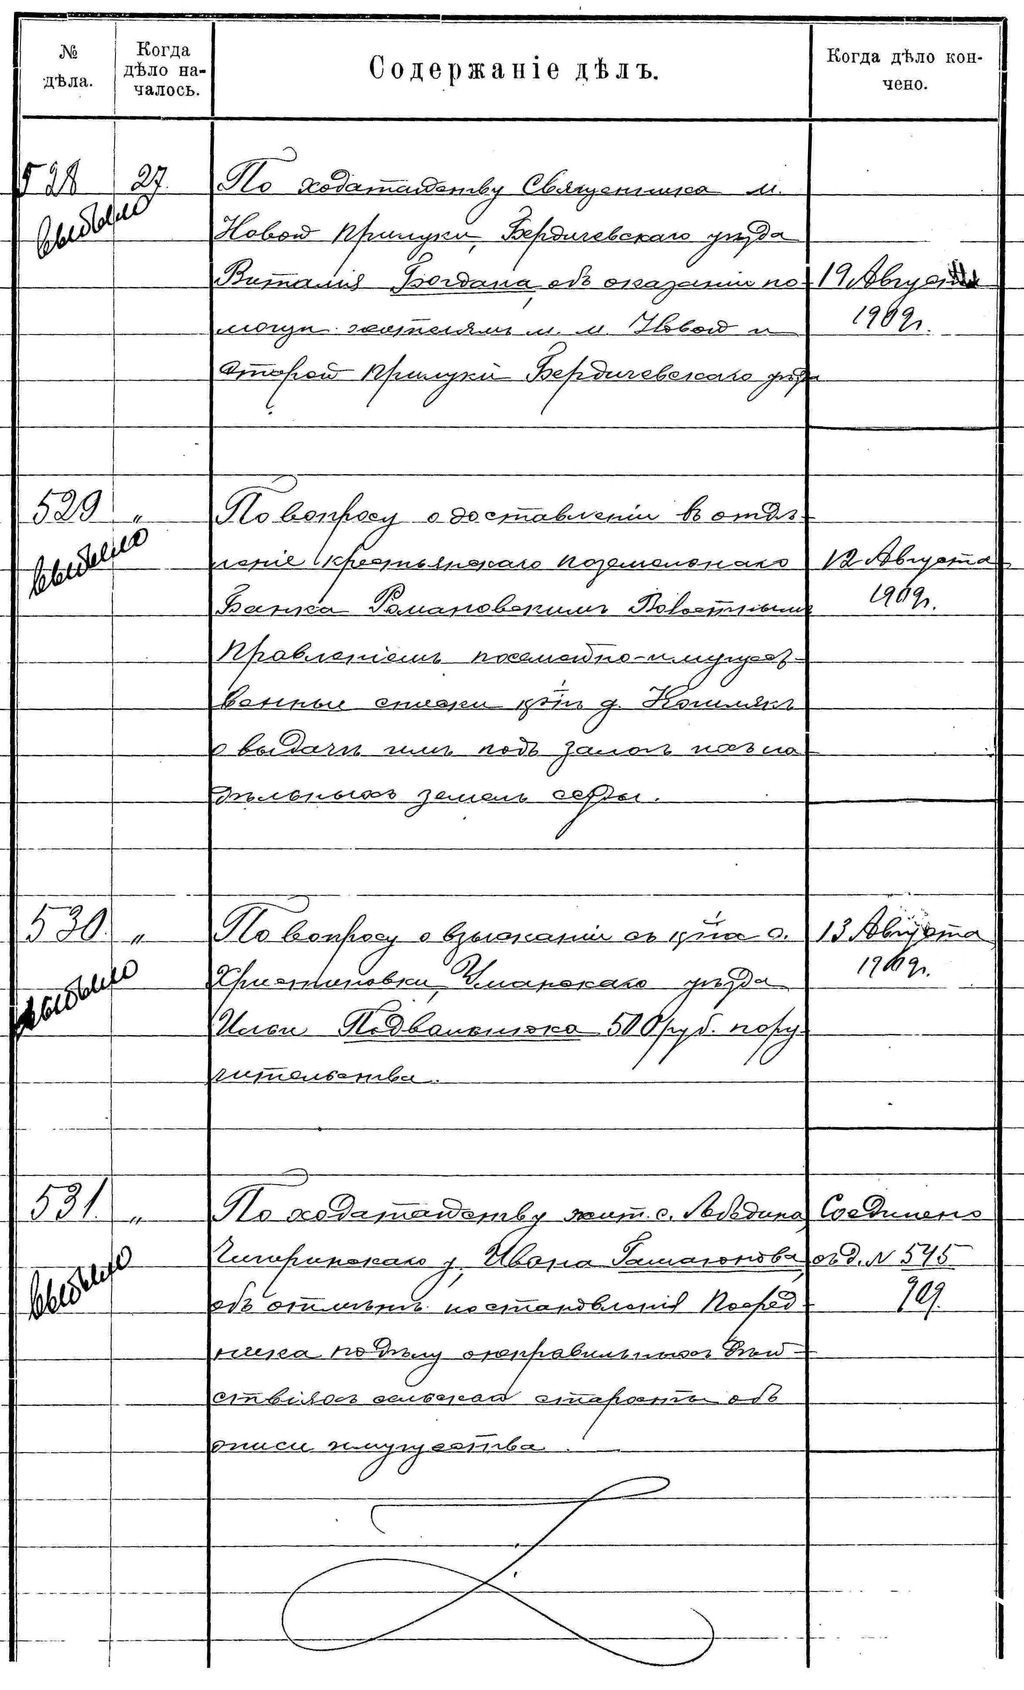 № дѣла.
Когда дѣло началось.
Содержаніе дѣлъ.
Когда дѣло кончено.
528
27.
выбыло
По ходатайству Священника м.
Новой Прилуки, Бердичевскаго уѣзда
Виталія Богдана, объ оказаніи по-
мощи жителямъ м. м. Новой и
Старой Прилуки Бердичевскаго уѣзда
19 Августа
1909г.
529
"
выбыло
По вопросу о доставленіи въ отдѣ-
леніе крестьянскаго поземельнаго
Банка Романовскимъ Волостнымъ
Правленіемъ посемейно-имущест-
венные списки кр-нъ д. Кошляк
о выдачѣ имъ подъ залогъ ихъ на
дѣльныхъ земель ссуды.
12 Августа
1909г.
530.
"
выбыло
По вопросу о взысканіи съ кр-на с.
Христиновки, Уманскаго уѣзда
Ильи Подвальнюка 500 руб. пору-
чительства.
13 Августа
1909г.
531.
"
выбыло
По ходатайству жит. с. Лебедина,
Чигиринскаго у, Ивана Гамаюнова,
объ отмѣнѣ постановленія Посред-
ника по дѣлу о неправильныхъ дѣй-
ствіяхъ сельскаго старосты объ
описи имущества.
Соединено
съ д. N 545
909.